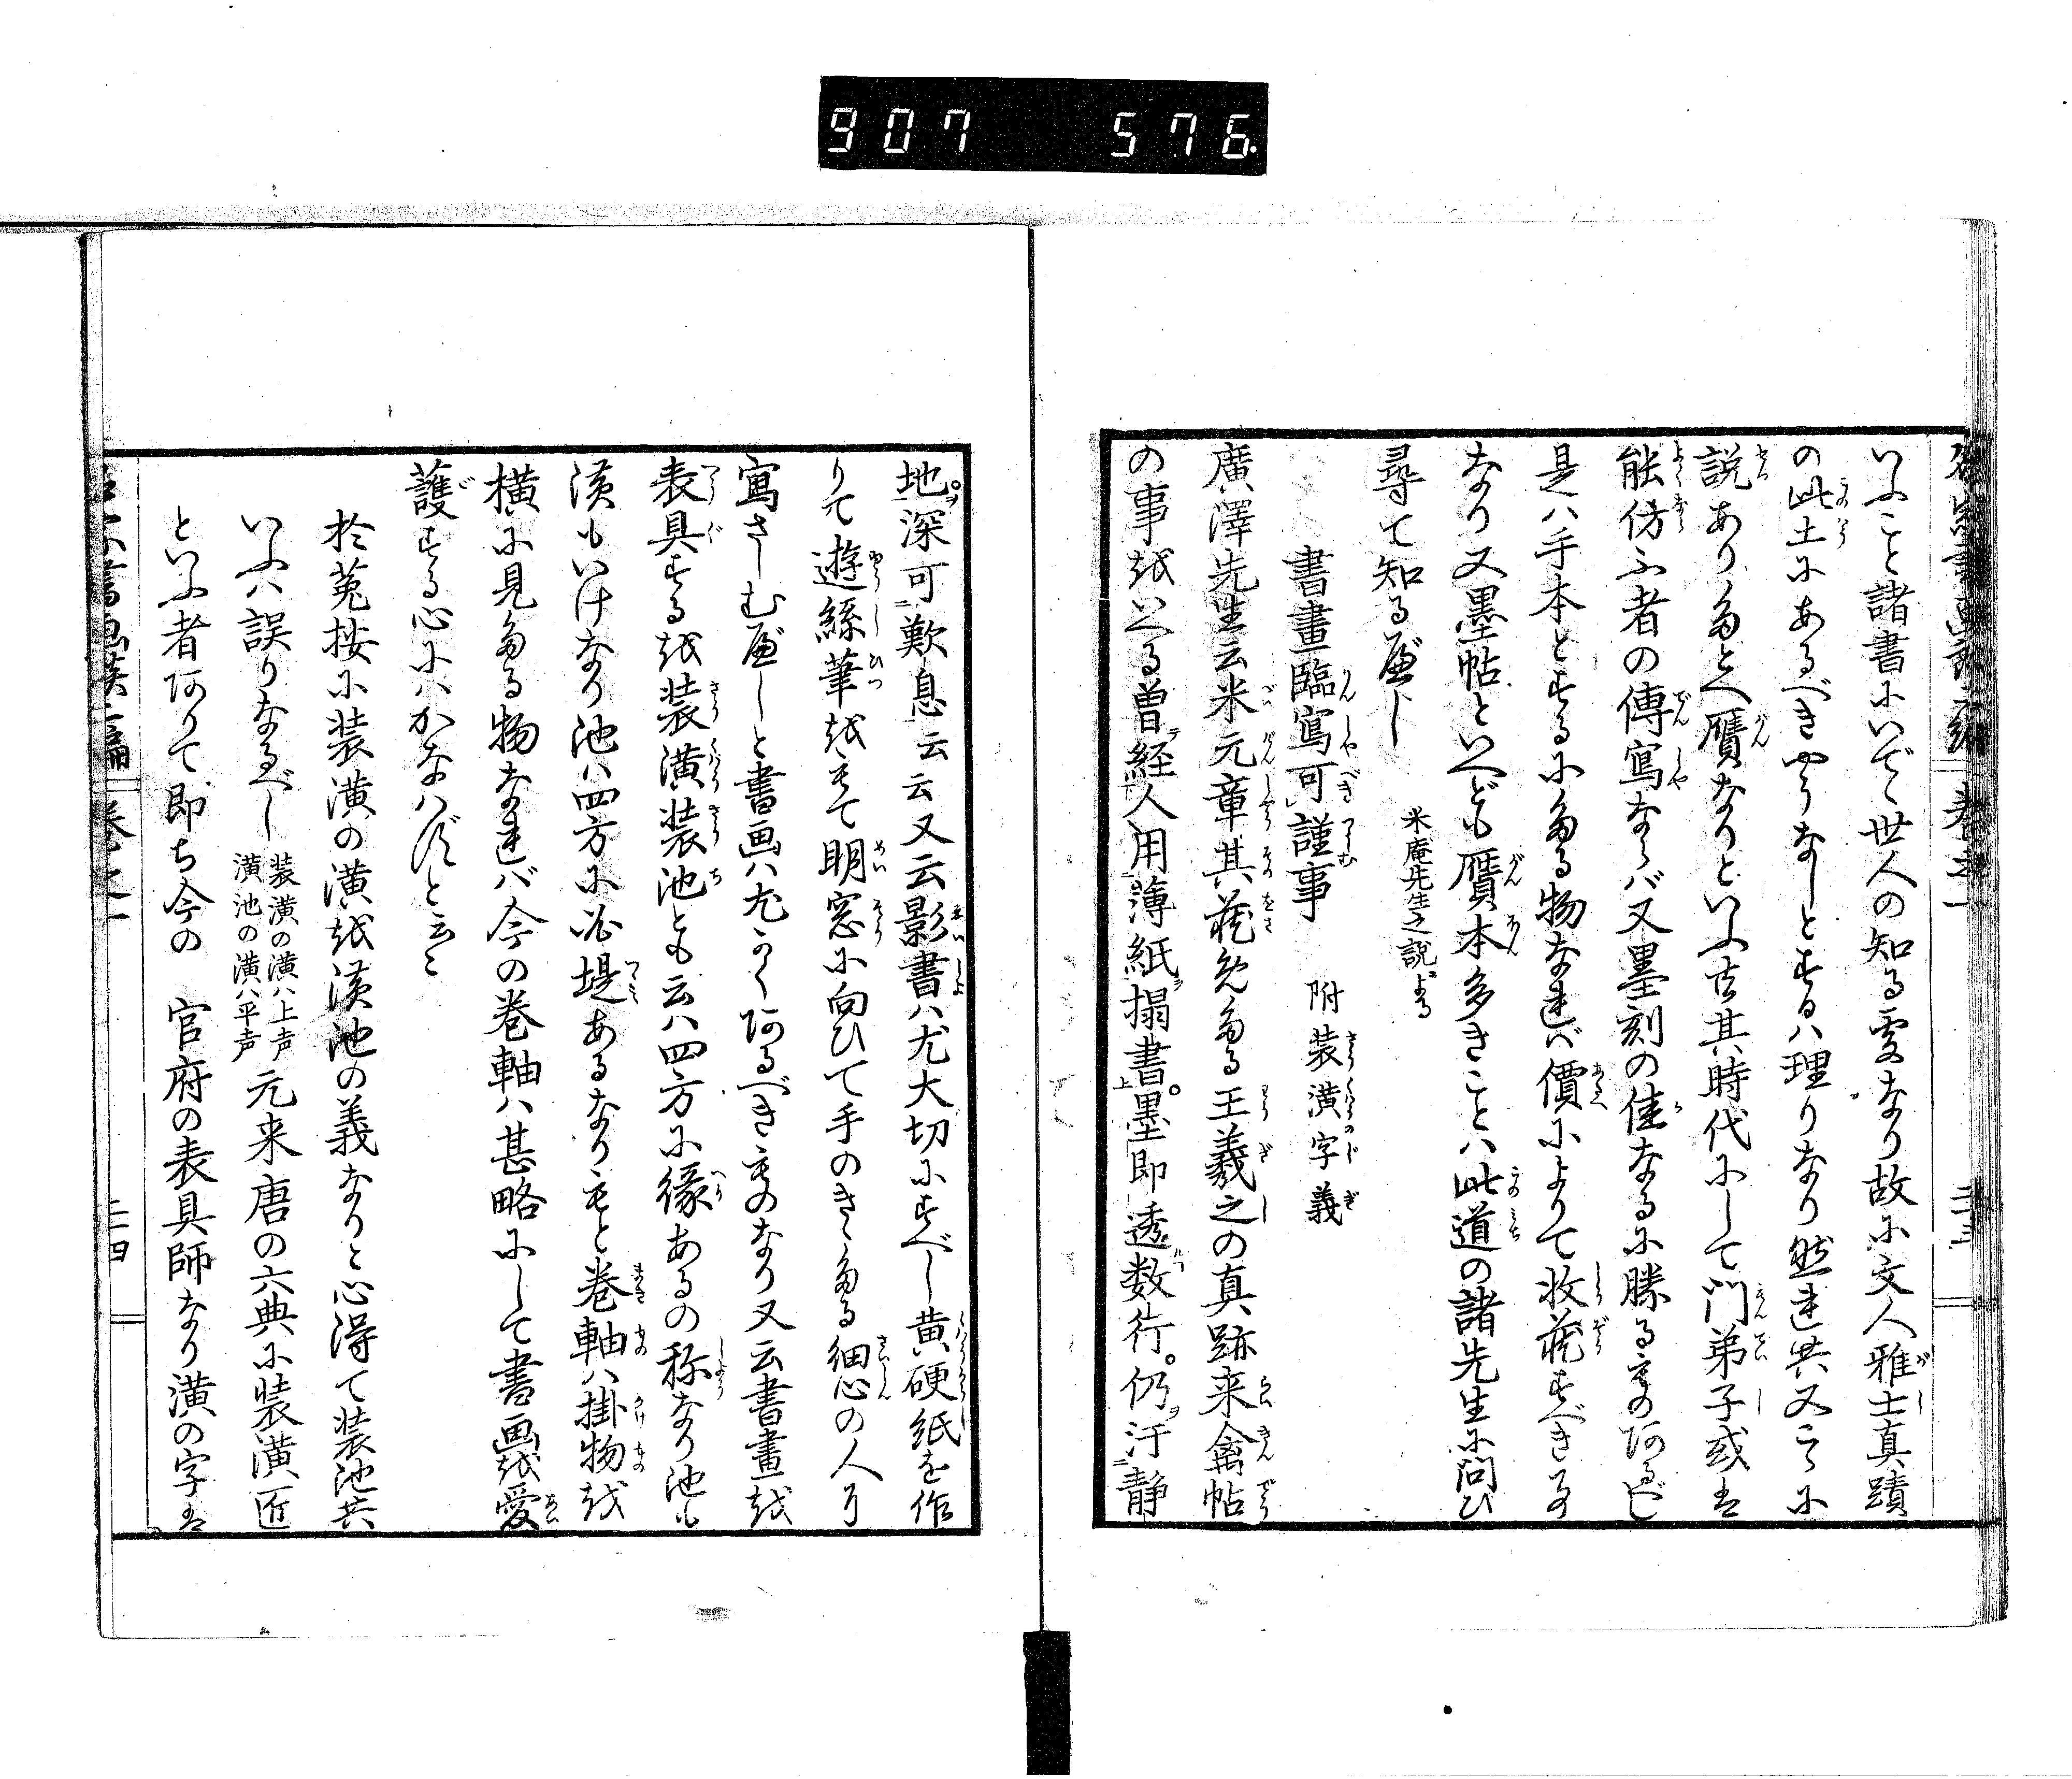 907 576
いふこと諸書にいでゝ世人の知る處なり故に文人雅士真蹟
の此土にあるべきやうなしとするハ理りなり然れ共又こゝに
説ありたとへ贋なりといふ共其時代にして門弟子或は
能仿ふ者の傳寫ならバ又墨刻の佳なるに勝るものあるべし
是ハ手本とするにたる物なれバ價によりて收蔵すべきもの
なり又墨帖といへども贋本多きことハ此道の諸先生に問ひ
尋て知るべし 米庵先生之説による
書畫臨寫可謹事 附装潢字義
廣澤先生云米元章其蔵めたる王羲之の真跡来禽帖
の事をいへる曽経人用薄紙搨書墨即透数行仍汙静
地深可歎息云云又云影書ハ尤大切にすべし黄硬紙を作
りて遊絲筆をもて明窓に向ひて手のきゝたる細心の人に
寫さしむべしと書画ハ尤かくあるべきものなり又云書畫を
表具するを装潢装池とも云ハ四方に縁あるの称なり池も
潢もいけなり池ハ四方に必堤あるなりもと巻軸ハ掛物を
横に見たる物なれバ今の巻軸ハ甚略にして書画を愛
護する心にハかなハずと云々
於菟按に装潢の潢を潢池の義なりと心得て装池共
いふハ誤りなるべし 装潢の潢ハ上声 潢池の潢ハ平声 元来唐の六典に装潢匠
といふ者ありて即ち今の 官府の表具師なり潢の字は
巻之一
二十四